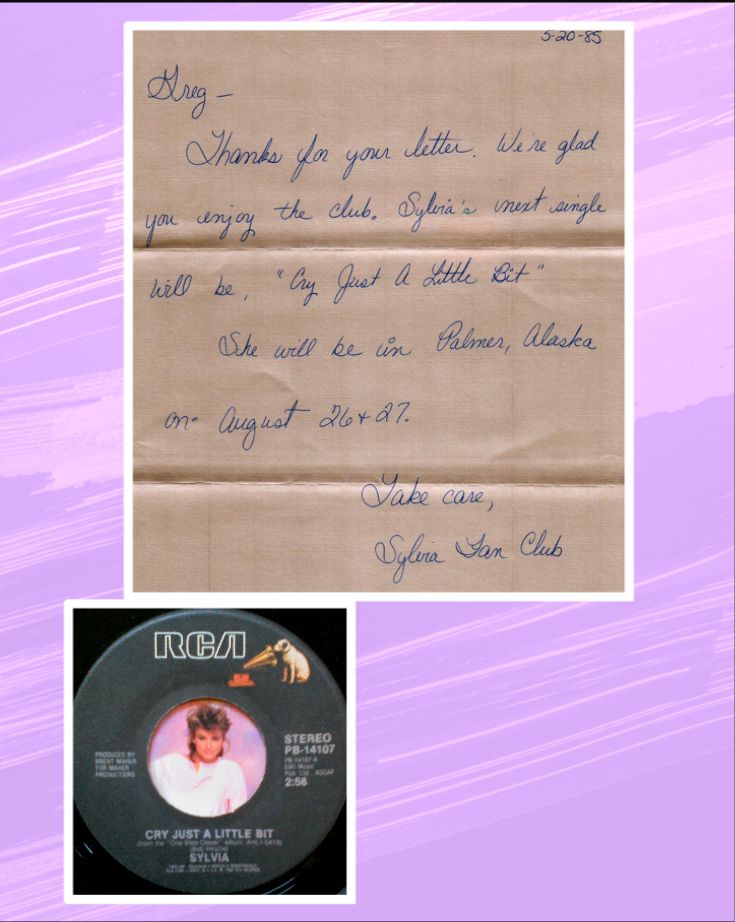 5-20-85
Greg —
Thanks for your letter. We're glad
you enjoy the club. Sylvia's next single
will be, "Cry Just A Little Bit"
She will be in Palmer, Alaska
on August 26 + 27.
Take care,
Sylvia Fan Club
RCA
STEREO
PB-14107
PB-14107-A
EMI Music
Pub. ASCAP
2:56
PRODUCED BY
BRENT MAHER
FOR MAHER
PRODUCTIONS
CRY JUST A LITTLE BIT
(from the "One Step Closer" album, AHL1-5413)
SYLVIA